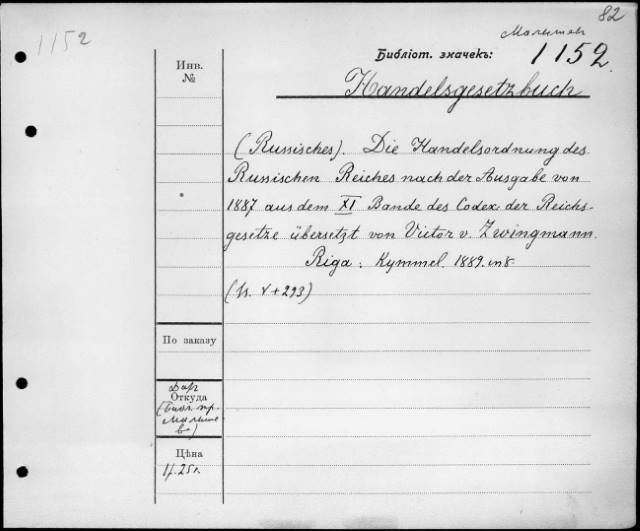 82
1152
Малышев
Библіот. значекъ: 1152.
Инв.
№
Handelsgesetzbuch
(Russisches). Die Handelsordnung des
Russischen Reiches nach der Ausgabe von
1887 aus dem XI Bande des Codex der Reichs-
gesetze übersetzt von Victor v. Zwingmann.
Riga: Kymmel. 1889. in 8.
V + 293)
По заказу
Дар
Откуда
(Библ. пр.
Малыше
ва)
Цѣна
25